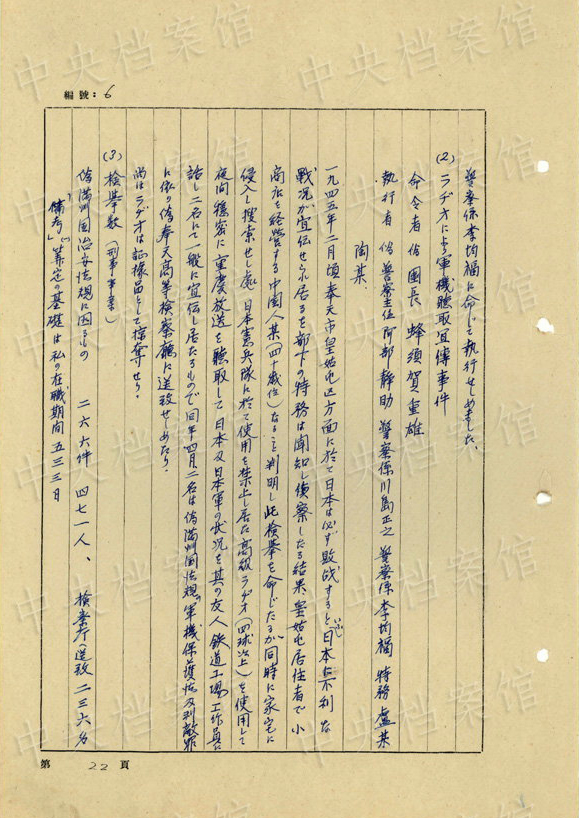 編號：6
警察係李均福に命じて執行せしめました、
(2) ラヂオによる軍機聽取宣傳事件
命令者 偽團長 蜂須賀重雄
執行者 偽警察主任阿部静助 警察係川島正之 警察係李均福 特務盧某
陶某、
一九四五年二月頃奉天市皇姑屯区方面に於て日本は必ず敗战すると日本に不利な
戦況が宣伝せられ居るを部下の特務は聞知し偵察したる結果、皇姑屯居住者で小
商店を経営する中國人某(四十歳位)なること判明し此検挙を命じたるが同時に家宅に
侵入し捜索せし処、日本憲兵隊に於て使用を禁止し居た高級ラヂオ(四球以上)を使用して
夜间穏密に重慶放送を聽取して日本及日本軍の状況を其の友人鉄道工場工作員に
話し二名にて一般に宣伝し居たるもので同年四月二名は偽満州國法規軍機保護法及利敵罪
に依り偽奉天高等検察廳に送致せしめたり、
尚はラヂオは証據品として掠奪せり。
(3) 検挙数 (刑事事業)
偽満州国治安法規に因るもの 二六六件 四七一人、 検察庁送致 二三六名
備考、 算定の基礎は私の在職期间五三三日
第 22 頁
中央档案馆